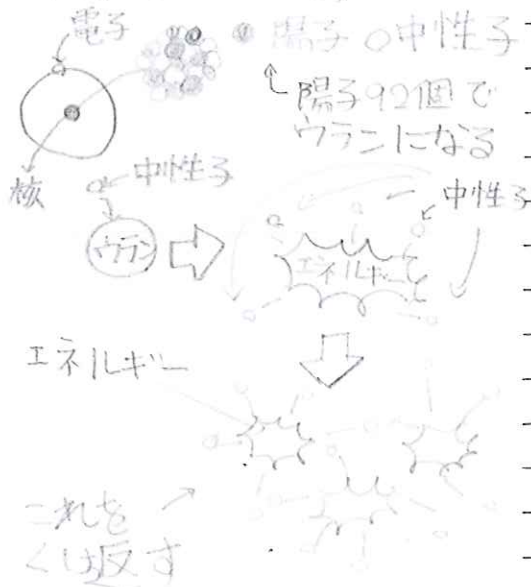 電子
陽子 中性子
陽子92個で
ウランになる
核
中性子
中性子
ウラン
エネルギー
エネルギー
これを
くり返す